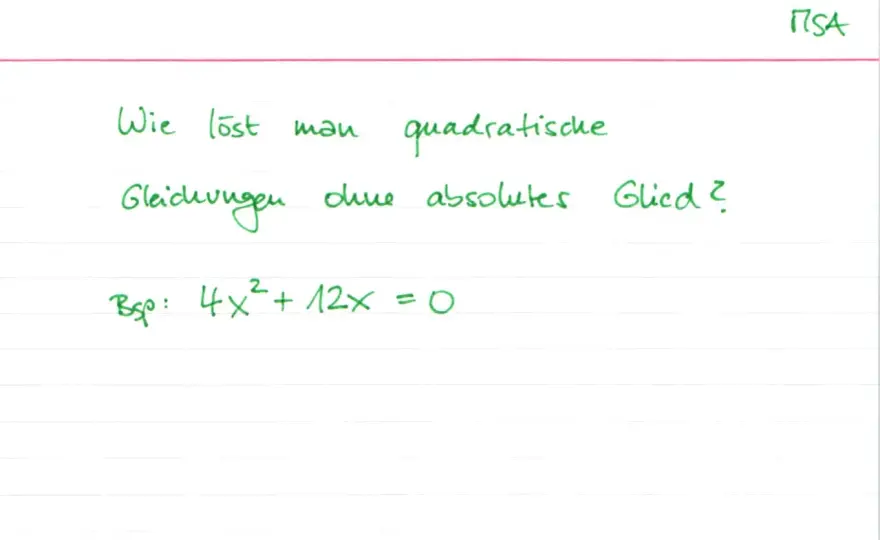 MSA
Wie löst man quadratische
Gleichungen ohne absolutes Glied?
Bsp: 4x² + 12x = 0